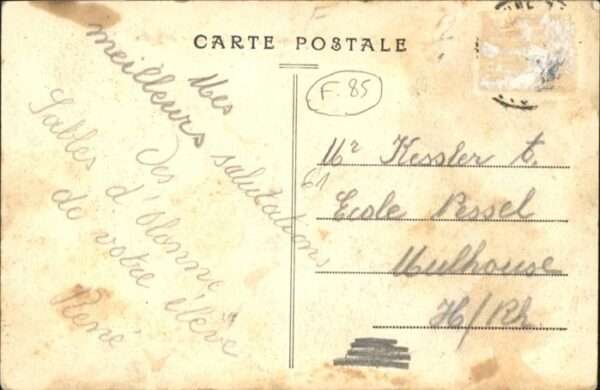 CARTE POSTALE
F. 85
Mes
meilleurs salutations
des
Sables d'Olonne
de votre élève
René
61
Mr Kessler
Ecole Pessel
Mulhouse
H/Rh